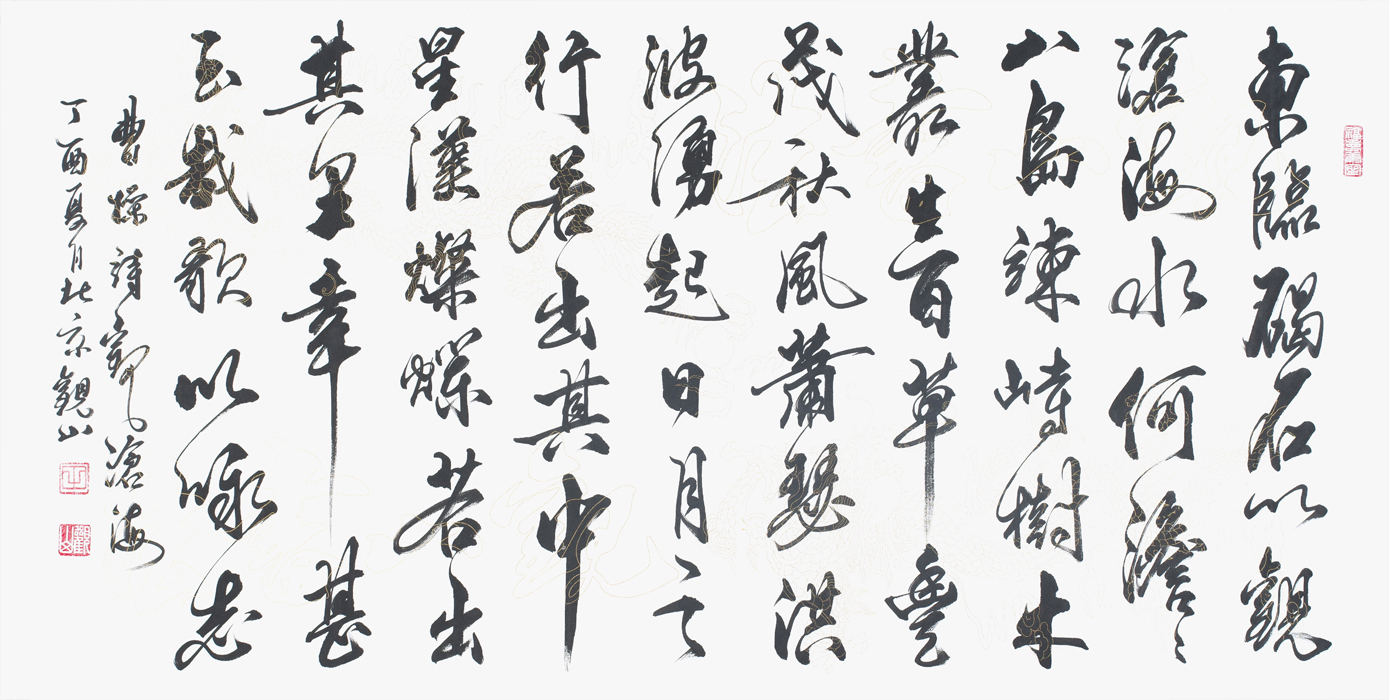 東臨碣石以觀
滄海水何澹〻
山島竦峙樹木
叢生百草豐
茂秋風蕭瑟洪
波湧起日月之
行若出其中
星漢燦爛若出
其里幸甚
至哉歌以咏志
曹操詩觀滄海
丁酉夏月北京觀山